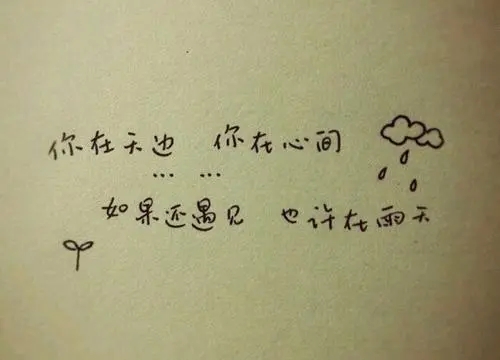 你在天边 你在心间
... ...
如果还遇见 也许在雨天